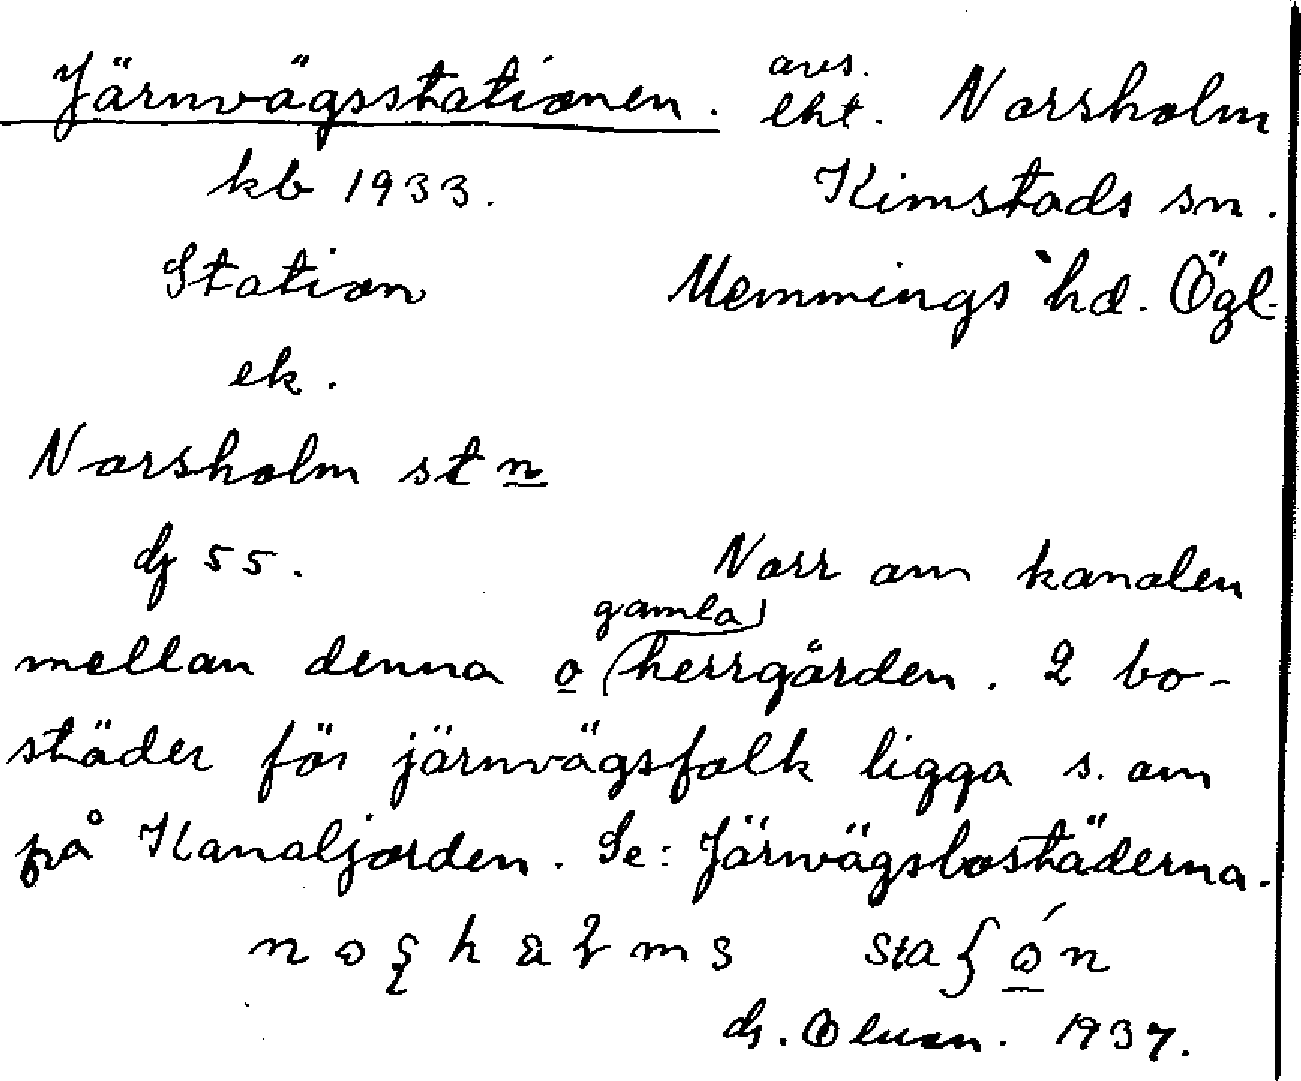 Järnvägsstationen. avs. lht. Norsholm
kb 1933. Kimstads sn.
Station Memmings hd. Ögl.
ek.
Norsholm stn
dj 55. Norr om kanalen
mellan denna o gamla herrgården. 2 bo-
städer för järnvägsfolk ligga s. om
på Kanaljorden. Se: Järvägsbostäderna.
1937.